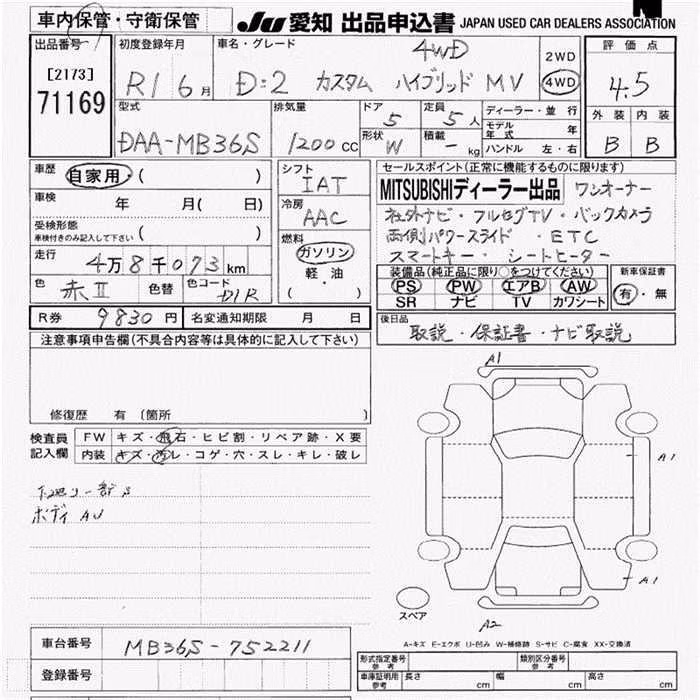 車内保管・守衛保管
JU 愛知 出品申込書 JAPAN USED CAR DEALERS ASSOCIATION
出品番号
[2173]
71169
初度登録年月
R1 6月
車名・グレード
4WD
D:2 カスタム ハイブリッド MV
2WD
4WD
評価点
4.5
外装 内装
B B
型式
DAA-MB36S
排気量
1200cc
ドア
5
定員
5人
形状
W
積載
- kg
ディーラー・並行
モデル年式 年
ハンドル 左・右
車歴
自家用・( )
車検 年 月( 日)
受検形態
車検付きのみ記入して下さい ( )
走行
4万8千073km
色
赤II
色替
色コード
D1R
シフト
IAT
冷房
AAC
燃料
ガソリン
軽・油
( )
R券 9830円
名変通知期限 月 日
セールスポイント(正常に機能するものに限ります)
MITSUBISHIディーラー出品 ワンオーナー
社外ナビ・フルセグTV・バックカメラ
両側パワースライド・ETC
スマートキー・シートヒーター
装備品(純正品に限り○をつけてください)
PS PW エアB AW
SR ナビ TV カワシート
新車保証書
有・無
後日品
取説・保証書・ナビ取説
注意事項申告欄(不具合内容等は具体的に記入して下さい)
修復歴 有 〔箇所 〕
検査員記入欄
FW キズ・飛石・ヒビ割・リペア跡・X要
内装 キズ・汚レ・コゲ・穴・スレ・キレ・破レ
下廻り一部S
ボディ AU
A1
A1
A1
A2
スペア
A-キズ E-エクボ U-凹み W-補修跡 S-サビ C-腐食 XX-交換済
車台番号 MB36S-752211
登録番号
形式指定番号 参考
類別区分番号 参考
車庫証明用 参考 長さ cm 幅 cm 高さ cm